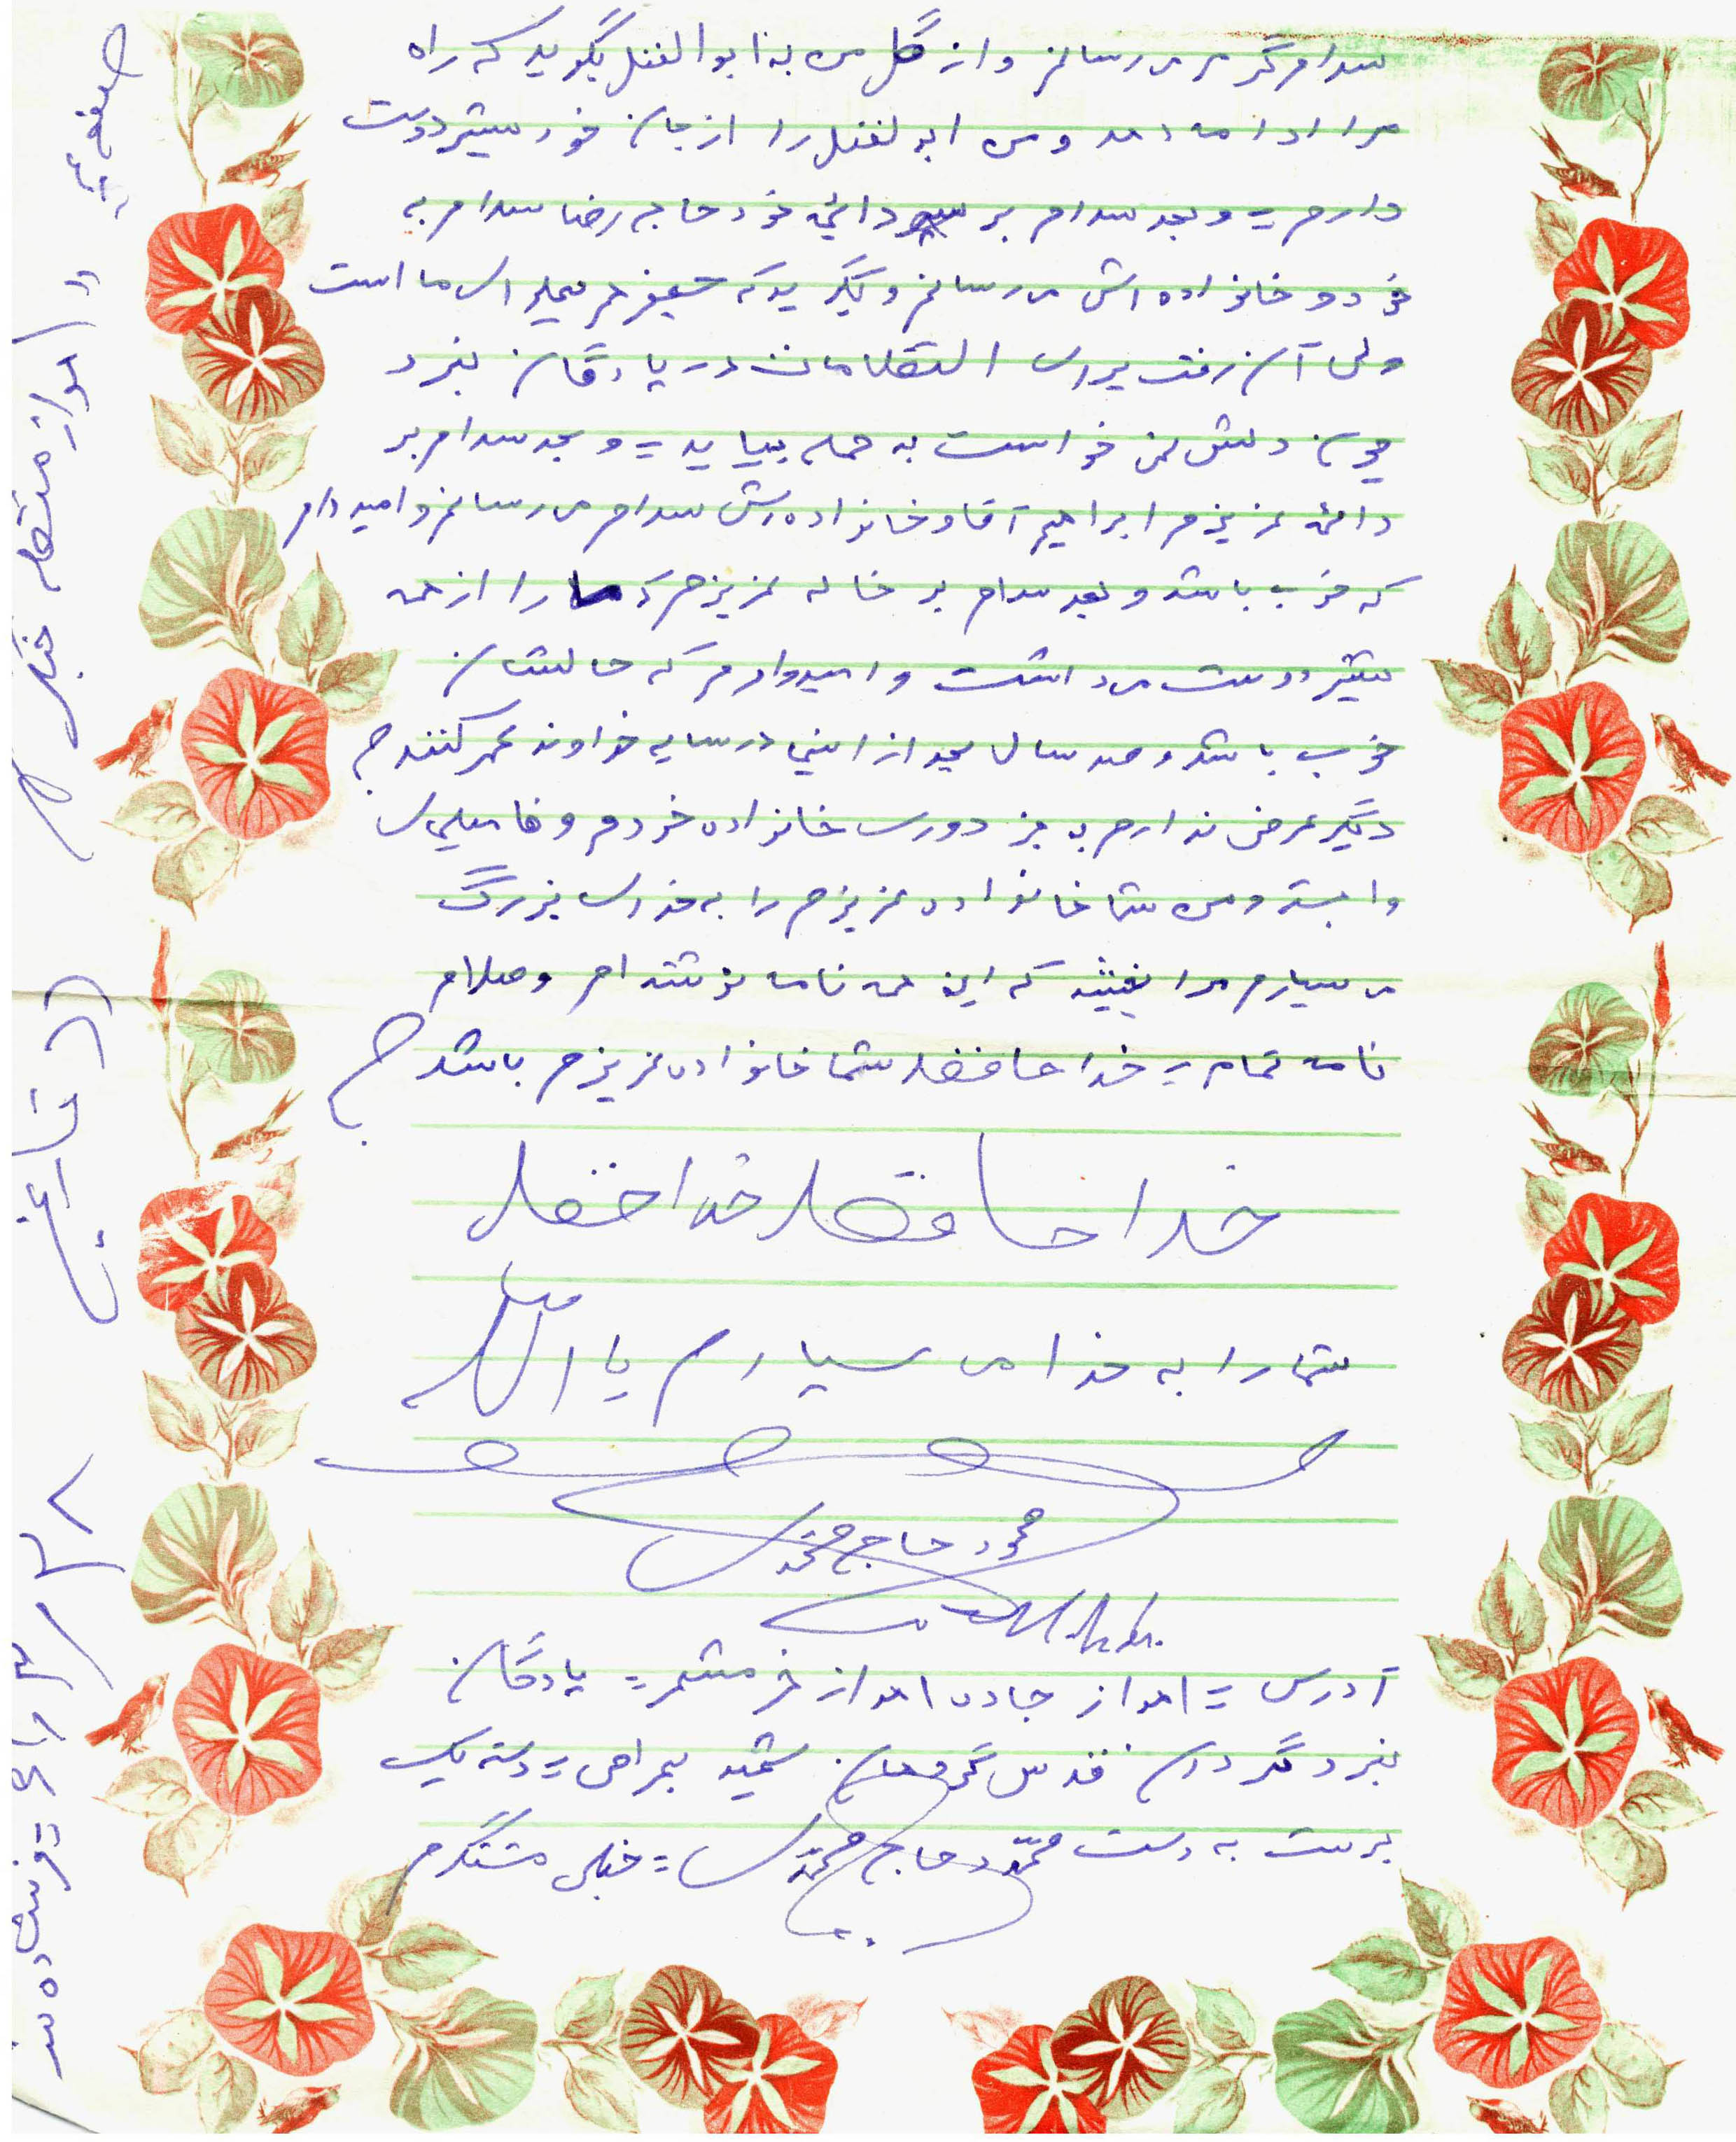 سلام گرم می رسانم و از گل من به ابوالفضل بگوید که راه
مرا ادامه دهد و من ابولفضل را از جان خود بیشتر دوست
دارم = و بعد سلام بر دائی خود حاج رضا سلام به
خود و خانواده اش می رسانم و بگویید که جعفر هم محل ما است
ولی آن رفت برای در پادگان نبرد
چون دلش نمی خواست به حمله بیاید = و بعد سلام بر
دائی عزیزم ابراهیم آقا و خانواده اش سلام می رسانم و امید دارم
که خوب باشد و بعد سلام بر خاله عزیزم که ما را از همه
بیشتر دوست می داشت و امیدوارم که حالشان
خوب باشد و صد سال بعد از این در سایه خداوند عمر کنند
دیگر عرضی ندارم به جز دوری خانواده خودم و فامیلی
وابسته و من شما خانواده عزیزم را به خدای بزرگ
می سپارم مرا ببخشید که این همه نامه نوشته ام وصلام
نامه تمام = خدا حافظ شما خانواده عزیزم باشد
خدا حافظ خدا حفظ
شما را به خدا می سپارم یا الله
محمود حاج محمدی
آدرس = اهواز جاده اهواز خرمشهر = پادگان
نبرد گردان قدس گروهان شهید بهرامی = دسته یک
برسد به دست محمود حاج محمدی = خیلی متشکرم
صفحه
اهواز منطقه جنگی
تاریخ